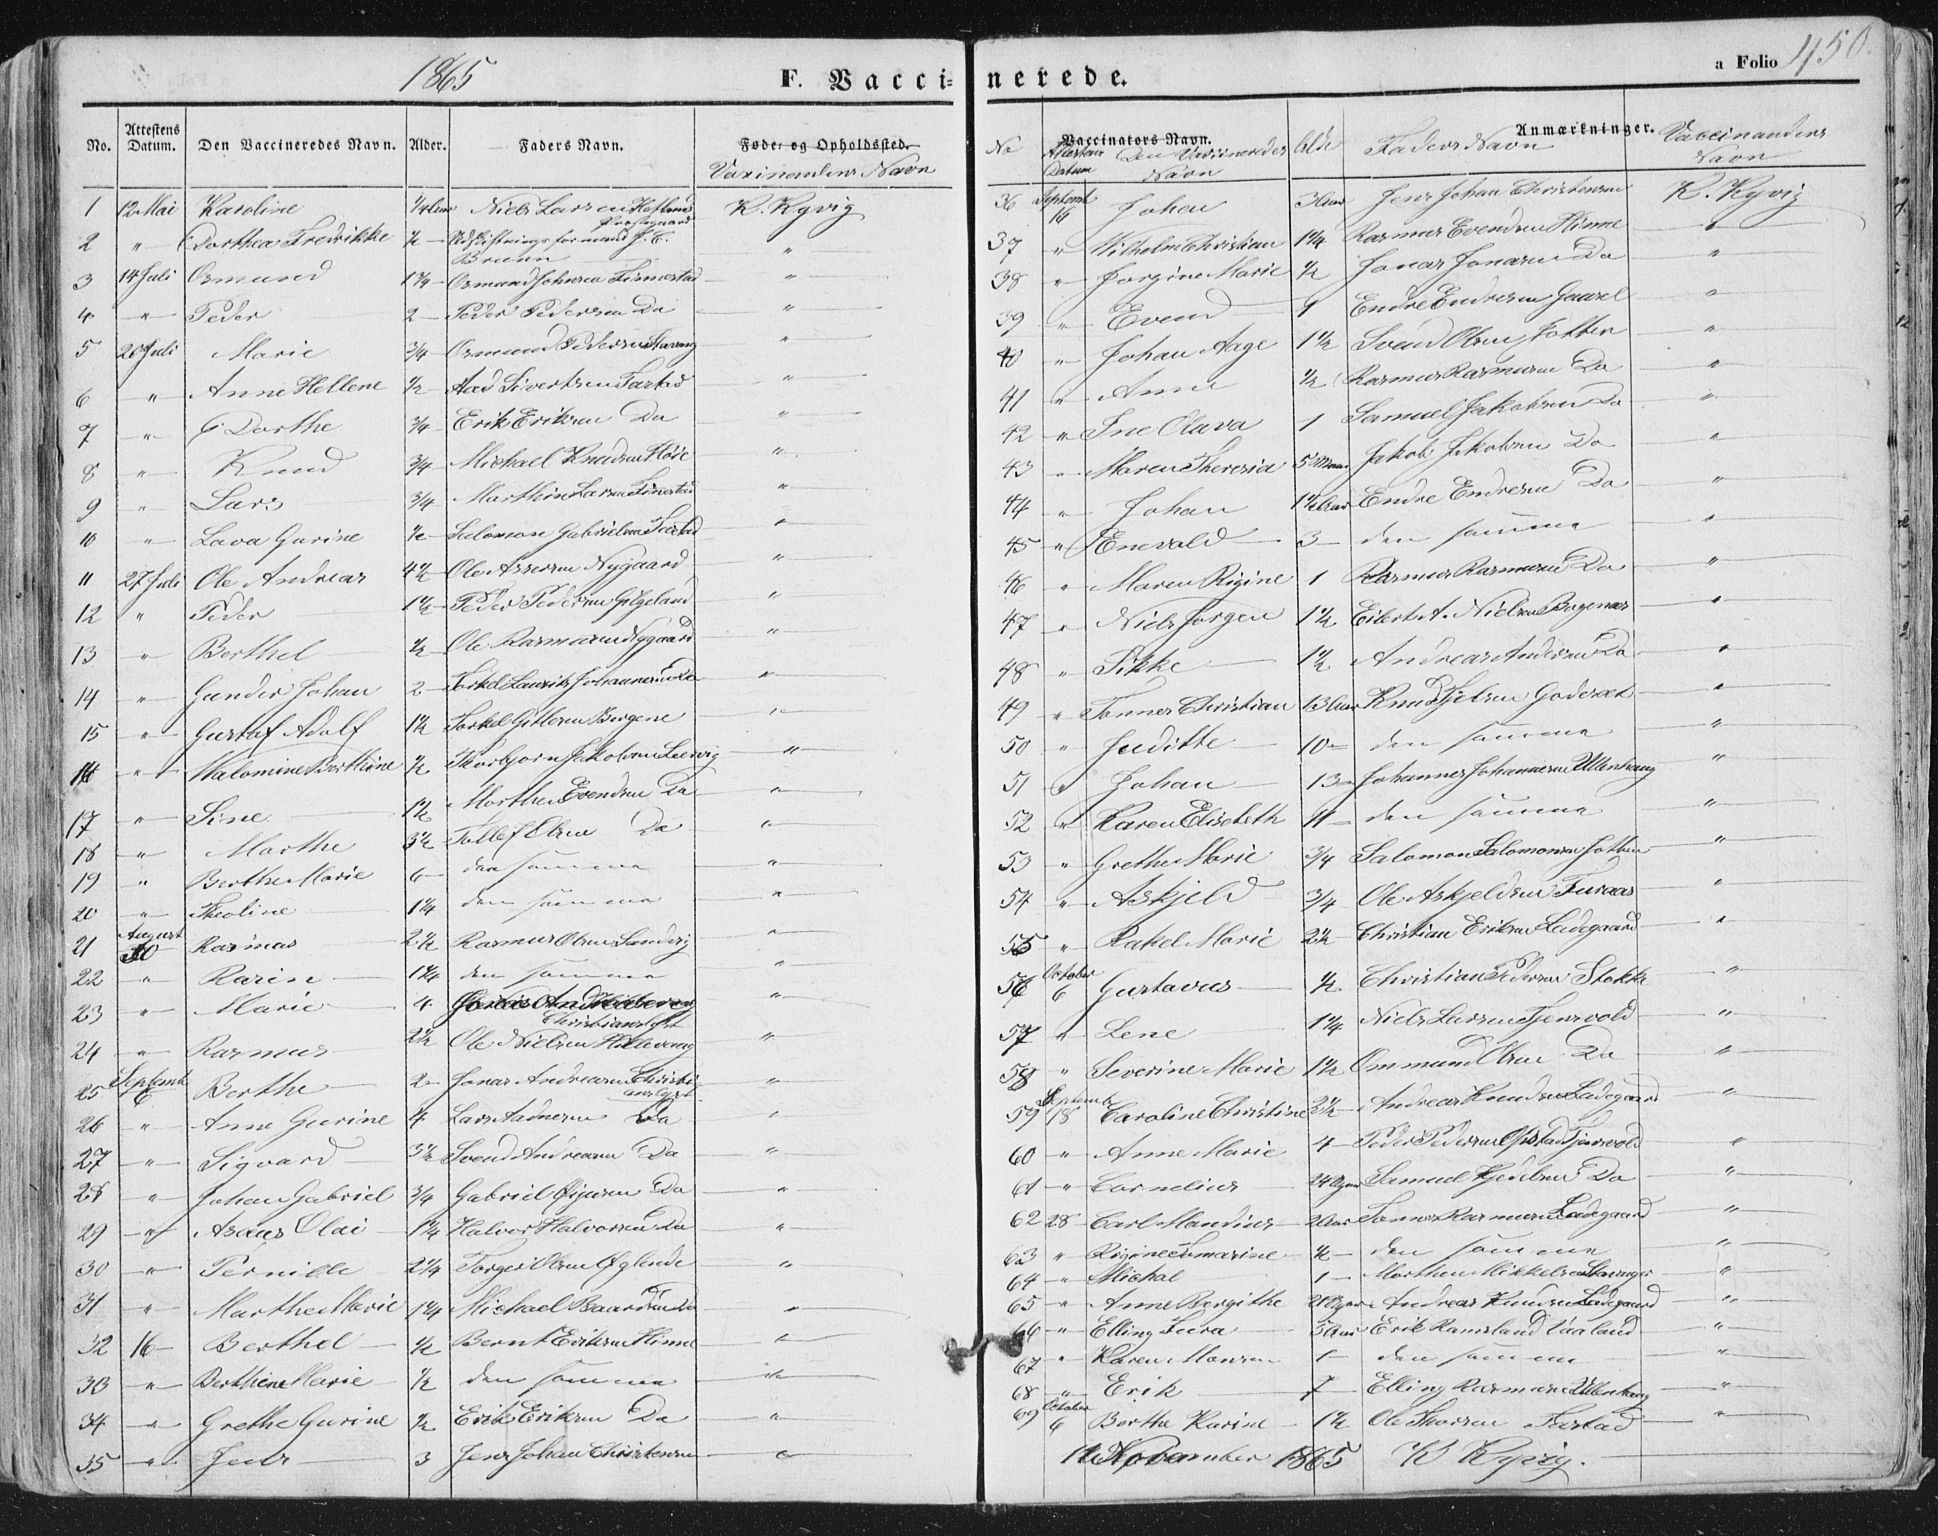 1865 F. Vaccinerede. a Folio 450.
No. Attestens Datum. Den Vaccineredes Navn. Alder. Faders Navn. Føde= og Opholdssted. Vaxinandens Navn
1 12 Mai Karoline 1/4 Aar Niels Larsen K. Kyvig
2 " Dorthea Fredrikke 1/2 - Udskiftningsformand J. C. Bruun "
3 14 Juli Osmund 1 3/4 - Osmund Johnsen Finnestad "
4 " Peder 2 - Peder Pedersen Do "
5 20 Juli Marie 3/4 - Osmund Pedersen "
6 " Anne Hellene 1/2 - Aad Sivertsen Tastad "
7 " Dorthe 3/4 - Erik Eriksen Do "
8 " Knud 3/4 - Michael Knudsen "
9 " Lars 3/4 Marthin Larsen Finestad "
10 " Lava Gurine 1/2 - Salomon Gabrielsen "
11 27 Juli Ole Andreas 4 1/2 - Ole Assersen Nygaard "
12 " Peder 1 1/2 - Peder Pedersen Gilgeland "
13 " Berthel 1/2 Ole Rasmusen Nygaard "
14 " Gunder Johan 2 - Torkel Lauritz Johannesen Do "
15 " Gustaf Adolf 1 1/2 Torkel Gitlesen Bergene "
16 " Malomine Berthine 1/2 Thorbjørn Jakobsen Leervig "
17 " Sine 1 1/2 Morthen Evendsen Do "
18 " Marthe 3 1/2 Tollef Olsen Do "
19 " Berthe Marie 6 - den samme "
20 " Theoline 1 1/4 den samme "
21 August 30 Rasmus 2 1/2 Rasmus Olsen Sandvig "
22 " Karin 1 1/4 den samme "
23 " Marie 4 Christianslyst "
24 " Rasmus 2 1/2 Ole Nielsen Hillevaag "
25 Septemb 6 Berthe 2 - Jonas Andreasen Christianslyst "
26 " Anne Gurine 4 Lars Aadnesen Do "
27 " Sigvard 3 1/2 Svend Andreasen Do "
28 " Johan Gabriel 3/4 Gabriel Do "
29 " Asaus Olai 1 1/4 Halvor Halvorsen Do "
30 " Pernille 2 1/4 Torger Olsen Øglende "
31 " Marthe Marie 1 1/4 Michael Baardsen Do "
32 16 Berthel 1/2 Bernt Eriksen Hinne "
33 " Berthine Marie 1/2 den samme "
34 " Grethe Gurine 1/2 Erik Eriksen Do "
35 " Jens 3 Jens Johan Christensen "
No Vaccinators Navn. Attestens Datum Den Vaccineredes Navn Alder Faders Navn Anmærkninger. Vaccinandens Navn
36 Septemb 16 Johan 3 Aar Jens Johan Christensen K. Kyvig
37 " Vilhelm Christian 1 1/4 Rasmus Evendsen Hinne "
38 " Jorgine Marie 1/2 Jonas Jonasen Do "
39 " Evend 1 Endre Endresen Gausel "
40 " Johan Aage 1 1/2 Svend Olsen Jotten "
41 " Anne 1/2 Rasmus Rasmusen Do "
42 " Ine Olava 1 Samuel Jakobsen Do "
43 " Maren Theresia 5 Maan Jakob Jakobsen Do "
44 " Johan 1 1/2 Aar Endre Endresen Do "
45 " Enevald 3 - den samme "
46 " Maren Rigine 1 Rasmus Rasmusen Do "
47 " Niels Jorgen 1 1/2 Eilert A. Nielsen "
48 " Sikke 1 1/2 Andreas Andersen Do "
49 " Tønnes Christian 13 Aar Knud Godeset "
50 " Juditte 10 - den samme "
51 " Johan 13 - Johannes Johannesen Ullenhaug "
52 " Karen Elisebeth 11 - den samme "
53 " Grethe Marie 3/4 Salomon Salomonsen Jotten "
54 " Askjeld 3/4 Ole Askjeldsen Furaas "
55 " Rakel Marie 2 1/2 Christian Eriksen Ladegaard "
56 October 6 Gustavus 1/2 Christian Pedersen Stokke "
57 " Lene 1 1/4 Niels Larsen Tjensvold "
58 " Severine Marie 1 1/2 Ommund Olsen Do "
59 Septemb 18 Caroline Christine 2 1/2 - Andreas Knudsen Ladegaard "
60 " Anne Marie 4 - Peder Pedersen Tjensvold "
61 " Cornelius Samuel Do "
62 28 Carl Mandius 2 Aar Tønnes Rasmusen Ladegaard "
63 " Rigine 1/2 - den samme "
64 " Michal 1 - Morthen Mikkelsen "
65 " Anne Bergithe Andreas Knudsen Ladegaard "
66 " Elling 5 Aar Erik Ramsland Vaaland "
67 " Karen 1 - den samme "
68 " Erik 7 - Elling Rasmusen Ullenhaug "
69 October 6 Berthe Karine 1 1/2 Ole "
November 1865 K Kyvig.